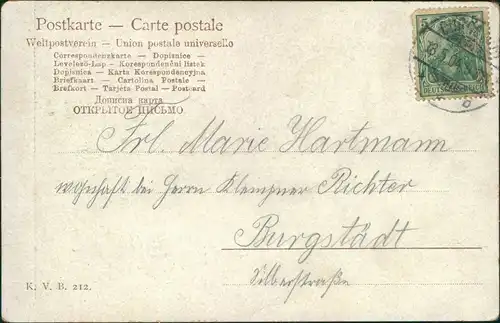 Postkarte — Carte postale
Weltpostverein — Union postale universelle
Correspondenzkarte — Dopisnice —
Levelező-Lap — Korespondenční lístek
Dopisnica — Karta Korespondencyjna
Briefkaart — Cartolina Postale —
Brefkort — Tarjeta Postal — Postcard
Дописна карта
ОТКРЫТОЕ ПИСЬМО
5
DEUTSCHES REICH
Frl. Marie Hartmann
wohnhaft bei Herrn Klempner Richter
Burgstädt
Silberstraße
K. V. B. 212.